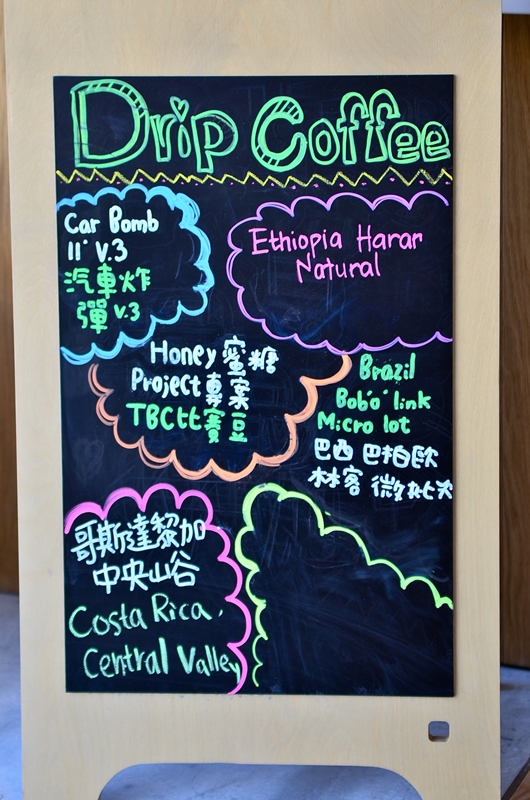 Drip Coffee
Car Bomb
11° V.3
汽車炸
彈 V.3
Ethiopia Harar
Natural
Honey 蜜糖
Project 專案
TBC比賽豆
Brazil
Bob'o'link
Micro lot
巴西 巴柏歐
林客 微批次
哥斯達黎加
中央山谷
Costa Rica,
Central Valley